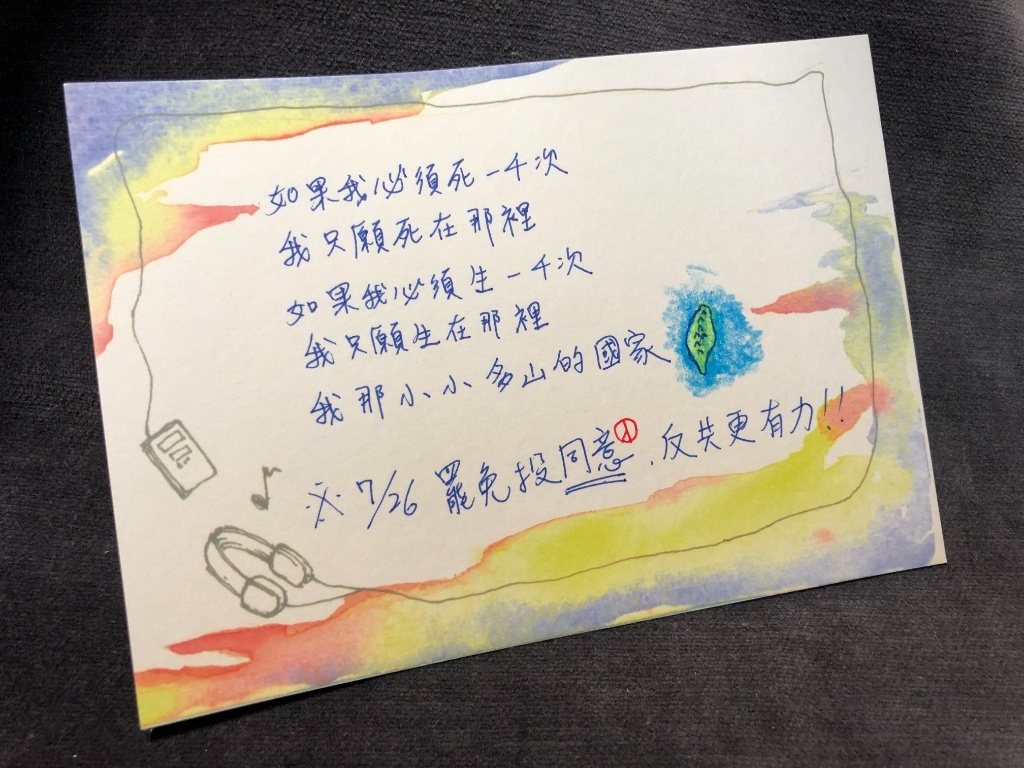 如果我必須死一千次
我只願死在那裡
如果我必須生一千次
我只願生在那裡
我那小小多山的國家
※ 7/26 罷免投同意，反共更有力!!